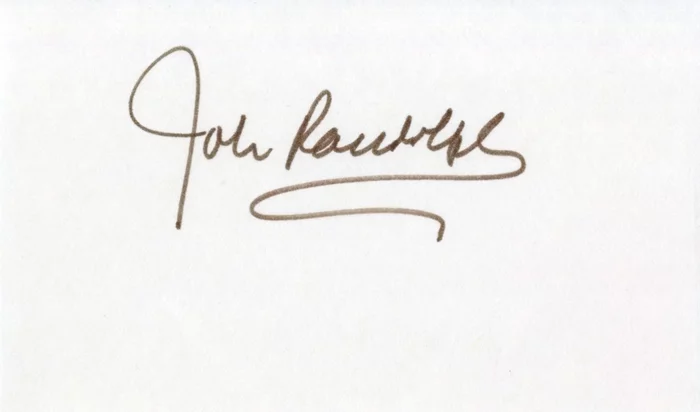 John Randolph